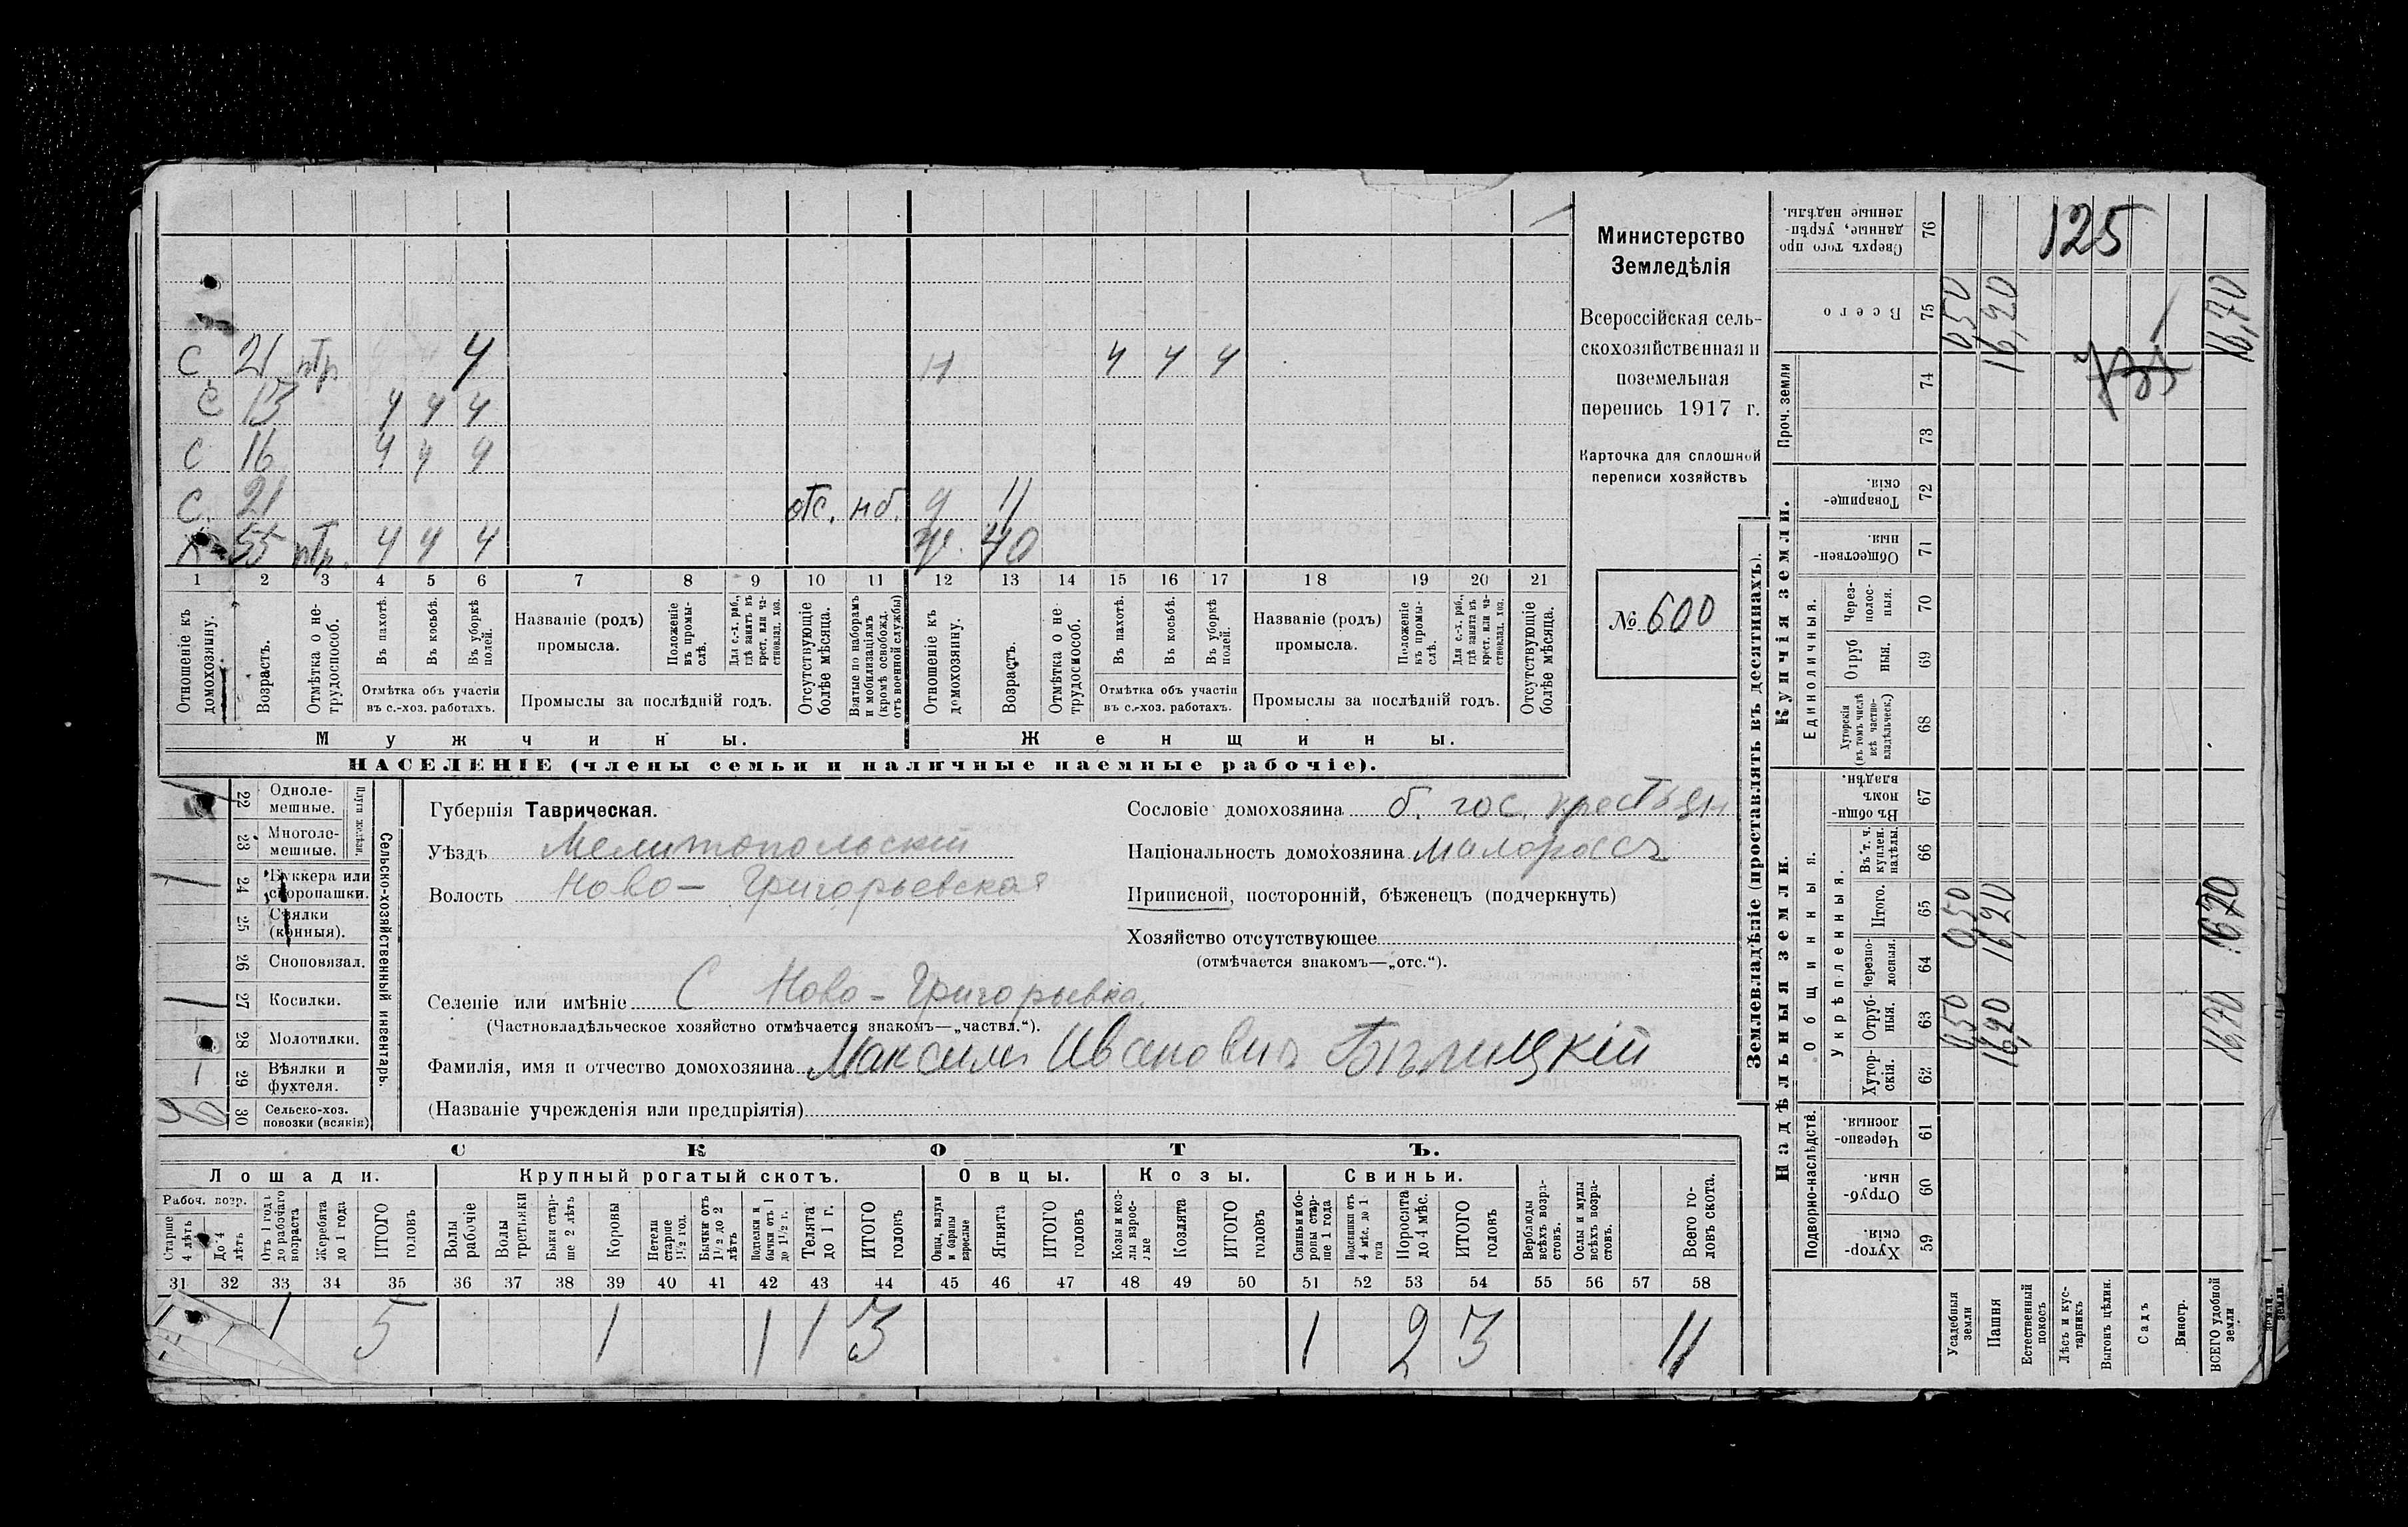 125
С 21 нтр 4 н 4 4 4
С 13 4 4 4
С 16 4 4 4
С. 21 отс. нб. д 11
х 55 нтр. 4 4 4 ж. 40
1 2 3 4 5 6 7 8 9 10 11 12 13 14 15 16 17 18 19 20 21
Отношеніе къ домохозяину.
Возрастъ.
Отмѣтка о не-трудоспособ.
Въ пахотѣ.
Въ косьбѣ.
Въ уборкѣ полей.
Отмѣтка объ участіи
въ с.-хоз. работахъ.
Названіе (родъ)
промысла.
Положеніе въ промы-слѣ.
Для с.-х. раб., гдѣ занятъ въ крест. или ча-стновлад. хоз.
Промыслы за послѣдній годъ.
Отсутствующіе болѣе мѣсяца.
Взятые по наборамъ и мобилизаціямъ (кромѣ освобожд. отъ военной службы)
Отношеніе къ домохозяину.
Возрастъ.
Отмѣтка о не-трудоспособ.
Въ пахотѣ.
Въ косьбѣ.
Въ уборкѣ полей.
Отмѣтка объ участіи
въ с.-хоз. работахъ.
Названіе (родъ)
промысла.
Положеніе въ промы-слѣ.
Для с.-х. раб., гдѣ занята въ крест. или ча-стновлад. хоз.
Промыслы за послѣдній годъ.
Отсутствующіе болѣе мѣсяца.
Мужчины. Женщины.
НАСЕЛЕНІЕ (члены семьи и наличные наемные рабочіе).
Министерство
Земледѣлія
Всероссійская сель-
скохозяйственная и
поземельная
перепись 1917 г.
Карточка для сплошной
переписи хозяйствъ
№ 600
Сельско-хозяйственный инвентарь.
Плуги желѣзн.
22 Одноле-
мешные.
23 Многоле-
мешные.
1 24 Буккера или
скоропашки.
25 Сѣялки
(конныя).
26 Сноповязал.
1 27 Косилки.
28 Молотилки.
1 29 Вѣялки и
фухтеля.
30 Сельско-хоз.
повозки (всякія)
Губернія Таврическая.
Уѣздъ Мелитопольскій
Волость Ново-Григорьевская
Сословіе домохозяина б. гос. крестьян
Національность домохозяина малороссъ
Приписной, посторонній, бѣженецъ (подчеркнуть)
Хозяйство отсутствующее
(отмѣчается знакомъ—„отс.“).
Селеніе или имѣніе С Ново-Григорьевка.
(Частновладѣльческое хозяйство отмѣчается знакомъ—„частвл.“).
Фамилія, имя и отчество домохозяина Максимъ Ивановичъ Бѣлицкій
(Названіе учрежденія или предпріятія)
СКОТЪ.
Лошади. Крупный рогатый скотъ. Овцы. Козы. Свиньи.
Рабоч. возр.
Старше 4 лѣтъ
До 4 лѣтъ
Отъ 1 года до рабочаго возраста
Жеребята до 1 года
ИТОГО головъ
Волы рабочіе
Волы третьяки
Быки стар-ше 2 лѣтъ
Коровы
Нетели старше 1½ год.
Бычки отъ 1½ до 2 лѣтъ
Подтелки и бычки отъ 1 до 1½ г.
Телята до 1 г.
ИТОГО головъ
Овцы, валухи и бараны взрослые
Ягнята
ИТОГО головъ
Козы и коз-лы взрос-лые
Козлята
ИТОГО головъ
Свиньи и бо-ровы стар-ше 1 года
Подсвинки отъ 4 мѣс. до 1 года
Поросята до 4 мѣс.
ИТОГО головъ
Верблюды всѣхъ возра-стовъ.
Ослы и мулы всѣхъ возра-стовъ.
Всего го-ловъ скота.
31 32 33 34 35 36 37 38 39 40 41 42 43 44 45 46 47 48 49 50 51 52 53 54 55 56 57 58
1 5 1 1 1 3 1 2 3 11
Землевладѣніе (проставлять въ десятинахъ).
Надѣльныя земли. Купчія земли. Проч. земли
Подворно-наслѣдств.
Общинныя.
Укрѣпленныя.
Единоличныя.
Хутор-скія. 59
Отруб-ныя. 60
Черезпо-лосныя. 61
Хутор-скія. 62
Отруб-ныя. 63
Черезпо-лосныя. 64
Итого. 65
Въ т. ч. куплен. надѣлы. 66
Въ общин-номъ владѣн. 67
Хуторскія (въ томъ числѣ всѣ частно-владѣльческ.) 68
Отруб-ныя. 69
Через-полос-ныя. 70
Обществен-ныя. 71
Товарище-скія. 72
73
74
Всего 75
Сверхъ того про-данные, укрѣп-ленные надѣлы. 76
Усадебныя земли 0,50 0,50 0,50
Пашня 16,20 16,20 16,20
Естественный покосъ
Лѣсъ и кус-тарникъ
Выгонъ цѣлин.
Садъ
Виногр.
ВСЕГО удобной земли 16,70 16,70 16,70